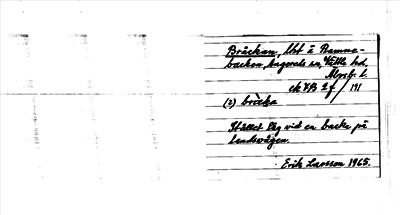 Bräckan, lht å Ramna-
backen, Angereds sn, Vättle hd.
Älvsb. l.
ek VB 2 f / 191
(2) bräcka
Stället låg vid en backe på
landsvägen.
Erik Larsson 1965.